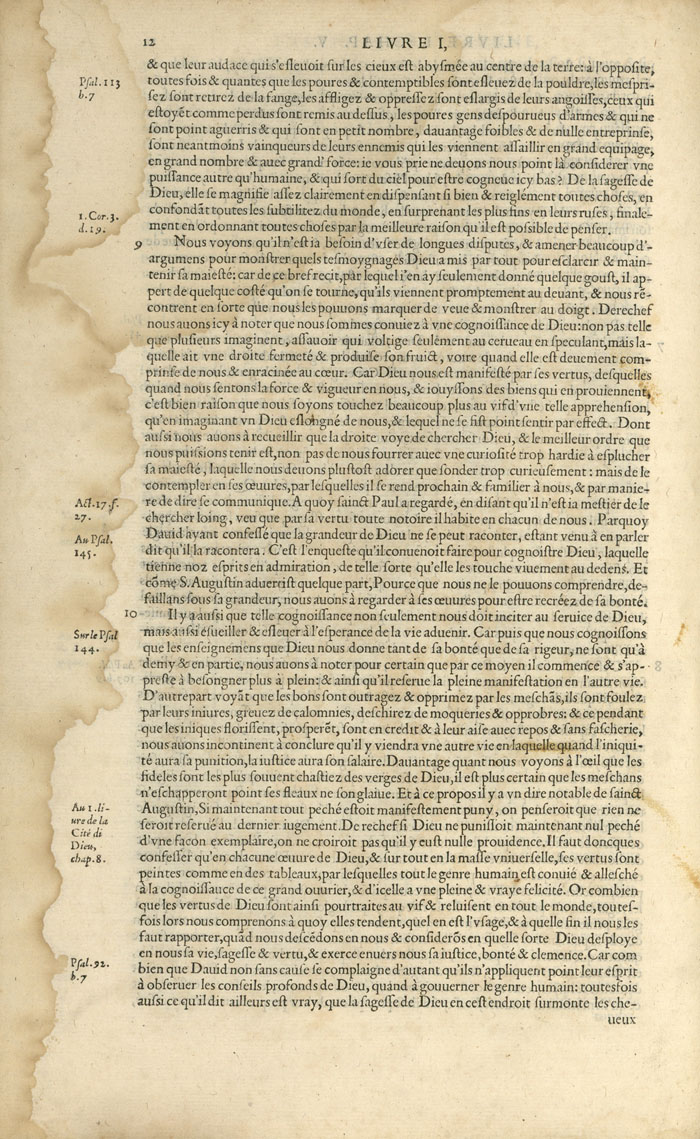 12
LIVRE I,
& que leur audace qui s'eſleuoit ſur les cieux eſt abyſmée au centre de la terre: à l'oppoſite,
Pſal. 113
b. 7
toutes fois & quantes que les poures & contemptibles ſont eſleuez de la pouldre, les meſpri-
ſez ſont retirez de la fange, les affligez & oppreſſez ſont eslargis de leurs angoiſſes, ceux qui
eſtoyẽt comme perdus ſont remis au deſſus, les poures gens deſpourueus d'armes & qui ne
ſont point aguerris & qui ſont en petit nombre, dauantage foibles & de nulle entreprinſe,
ſont neantmoins vainqueurs de leurs ennemis qui les viennent aſſaillir en grand equipage,
en grand nombre & auec grand' force: ie vous prie ne deuons nous point là conſiderer vne
puiſſance autre qu'humaine, & qui ſort du ciel pour eſtre cogneue icy bas? De la ſageſſe de
Dieu, elle ſe magnifie aſſez clairement en diſpenſant ſi bien & reiglément toutes choſes, en
1. Cor. 3.
d. 19.
confondãt toutes les ſubtilitez du monde, en ſurprenant les plus fins en leurs ruſes, finale-
ment en ordonnant toutes choſes par la meilleure raiſon qu'il eſt poſſible de penſer.
9 Nous voyons qu'il n'eſt ia beſoin d'vſer de longues diſputes, & amener beaucoup d'-
argumens pour monſtrer quels teſmoygnages Dieu a mis par tout pour eſclarcir & main-
tenir ſa maieſté: car de ce bref recit, par lequel i'en ay ſeulement donné quelque gouſt, il ap-
pert de quelque coſté qu'on ſe tourne, qu'ils viennent promptement au deuant, & nous rẽ-
contrent en ſorte que nous les pouuons marquer de veue & monſtrer au doigt. Derechef
nous auons icy à noter que nous ſommes conuiez à vne cognoiſſance de Dieu: non pas telle
que pluſieurs imaginent, aſſauoir qui voltige ſeulement au cerueau en ſpeculant, mais la-
quelle ait vne droite fermeté & produiſe ſon fruict, voire quand elle eſt deuement com-
prinſe de nous & enracinée au cœur. Car Dieu nous eſt manifeſté par ſes vertus, deſquelles
quand nous ſentons la force & vigueur en nous, & iouyſſons des biens qui en prouiennent,
c'eſt bien raiſon que nous ſoyons touchez beaucoup plus au vif d'vne telle apprehenſion,
qu'en imaginant vn Dieu eſlongné de nous, & lequel ne ſe fiſt point ſentir par effect. Dont
auſſi nous auons à recueillir que la droite voye de chercher Dieu, & le meilleur ordre que
nous puiſſions tenir eſt, non pas de nous fourrer auec vne curioſité trop hardie à eſplucher
ſa maieſté, laquelle nous deuons pluſtoſt adorer que ſonder trop curieuſement: mais de le
contempler en ſes œuures, par leſquelles il ſe rend prochain & familier à nous, & par manie-
Act. 17. f.
27.
re de dire ſe communique. A quoy ſainct Paul a regardé, en diſant qu'il n'eſt ia meſtier de le
chercher loing, veu que par ſa vertu toute notoire il habite en chacun de nous. Parquoy
Au Pſal.
145.
Dauid ayant confeſſé que la grandeur de Dieu ne ſe peut raconter, eſtant venu à en parler
dit qu'il la racontera. C'eſt l'enqueſte qu'il conuenoit faire pour cognoiſtre Dieu, laquelle
tienne noz eſprits en admiration, de telle ſorte qu'elle les touche viuement au dedens. Et
cõme S. Auguſtin aduertiſt quelque part, Pource que nous ne le pouuons comprendre, de-
faillans ſous ſa grandeur, nous auons à regarder à ſes œuures pour eſtre recréez de ſa bonté.
10 Il y a auſſi que telle cognoiſſance non ſeulement nous doit inciter au ſeruice de Dieu,
Sur le Pſal
144.
mais auſſi eſueiller & eſleuer à l'eſperance de la vie aduenir. Car puis que nous cognoiſſons
que les enſeignemens que Dieu nous donne tant de ſa bonté que de ſa rigueur, ne ſont qu'à
demy & en partie, nous auons à noter pour certain que par ce moyen il commence & s'ap-
preſte à beſongner plus à plein: & ainſi qu'il reſerue la pleine manifeſtation en l'autre vie.
D'autrepart voyãt que les bons ſont outragez & opprimez par les meſchãs, ils ſont foulez
par leurs iniures, greuez de calomnies, deſchirez de moqueries & opprobres: & ce pendant
que les iniques floriſſent, proſperẽt, ſont en credit & à leur aiſe auec repos & ſans faſcherie,
nous auons incontinent à conclure qu'il y viendra vne autre vie en laquelle quand l'iniqui-
té aura ſa punition, la iuſtice aura ſon ſalaire. Dauantage quant nous voyons à l'œil que les
fideles ſont les plus ſouuent chaſtiez des verges de Dieu, il eſt plus certain que les meſchans
n'eſchapperont point ſes fleaux ne ſon glaiue. Et à ce propos il y a vn dire notable de ſainct
Au 1. li-
ure de la
Cité di
Dieu,
chap. 8.
Auguſtin, Si maintenant tout peché eſtoit manifeſtement puny, on penſeroit que rien ne
ſeroit reſerué au dernier iugement. De rechef ſi Dieu ne puniſſoit maintenant nul peché
d'vne façon exemplaire, on ne croiroit pas qu'il y euſt nulle prouidence. Il faut doncques
confeſſer qu'en chacune œuure de Dieu, & ſur tout en la maſſe vniuerſelle, ſes vertus ſont
peintes comme en des tableaux, par leſquelles tout le genre humain eſt conuié & alleſché
à la cognoiſſance de ce grand ouurier, & d'icelle a vne pleine & vraye felicité. Or combien
que les vertus de Dieu ſont ainſi pourtraites au vif & reluiſent en tout le monde, toutes-
fois lors nous comprenons à quoy elles tendent, quel en eſt l'vſage, & à quelle fin il nous les
faut rapporter, quãd nous deſcẽdons en nous & conſiderõs en quelle ſorte Dieu deſploye
Pſal. 92.
b. 7
en nous ſa vie, ſageſſe & vertu, & exerce enuers nous ſa iuſtice, bonté & clemence. Car com
bien que Dauid non ſans cauſe ſe complaigne d'autant qu'ils n'appliquent point leur eſprit
à obſeruer les conſeils profonds de Dieu, quand à gouuerner le genre humain: toutesfois
auſſi ce qu'il dit ailleurs eſt vray, que la ſageſſe de Dieu en ceſt endroit ſurmonte les che-
ueux